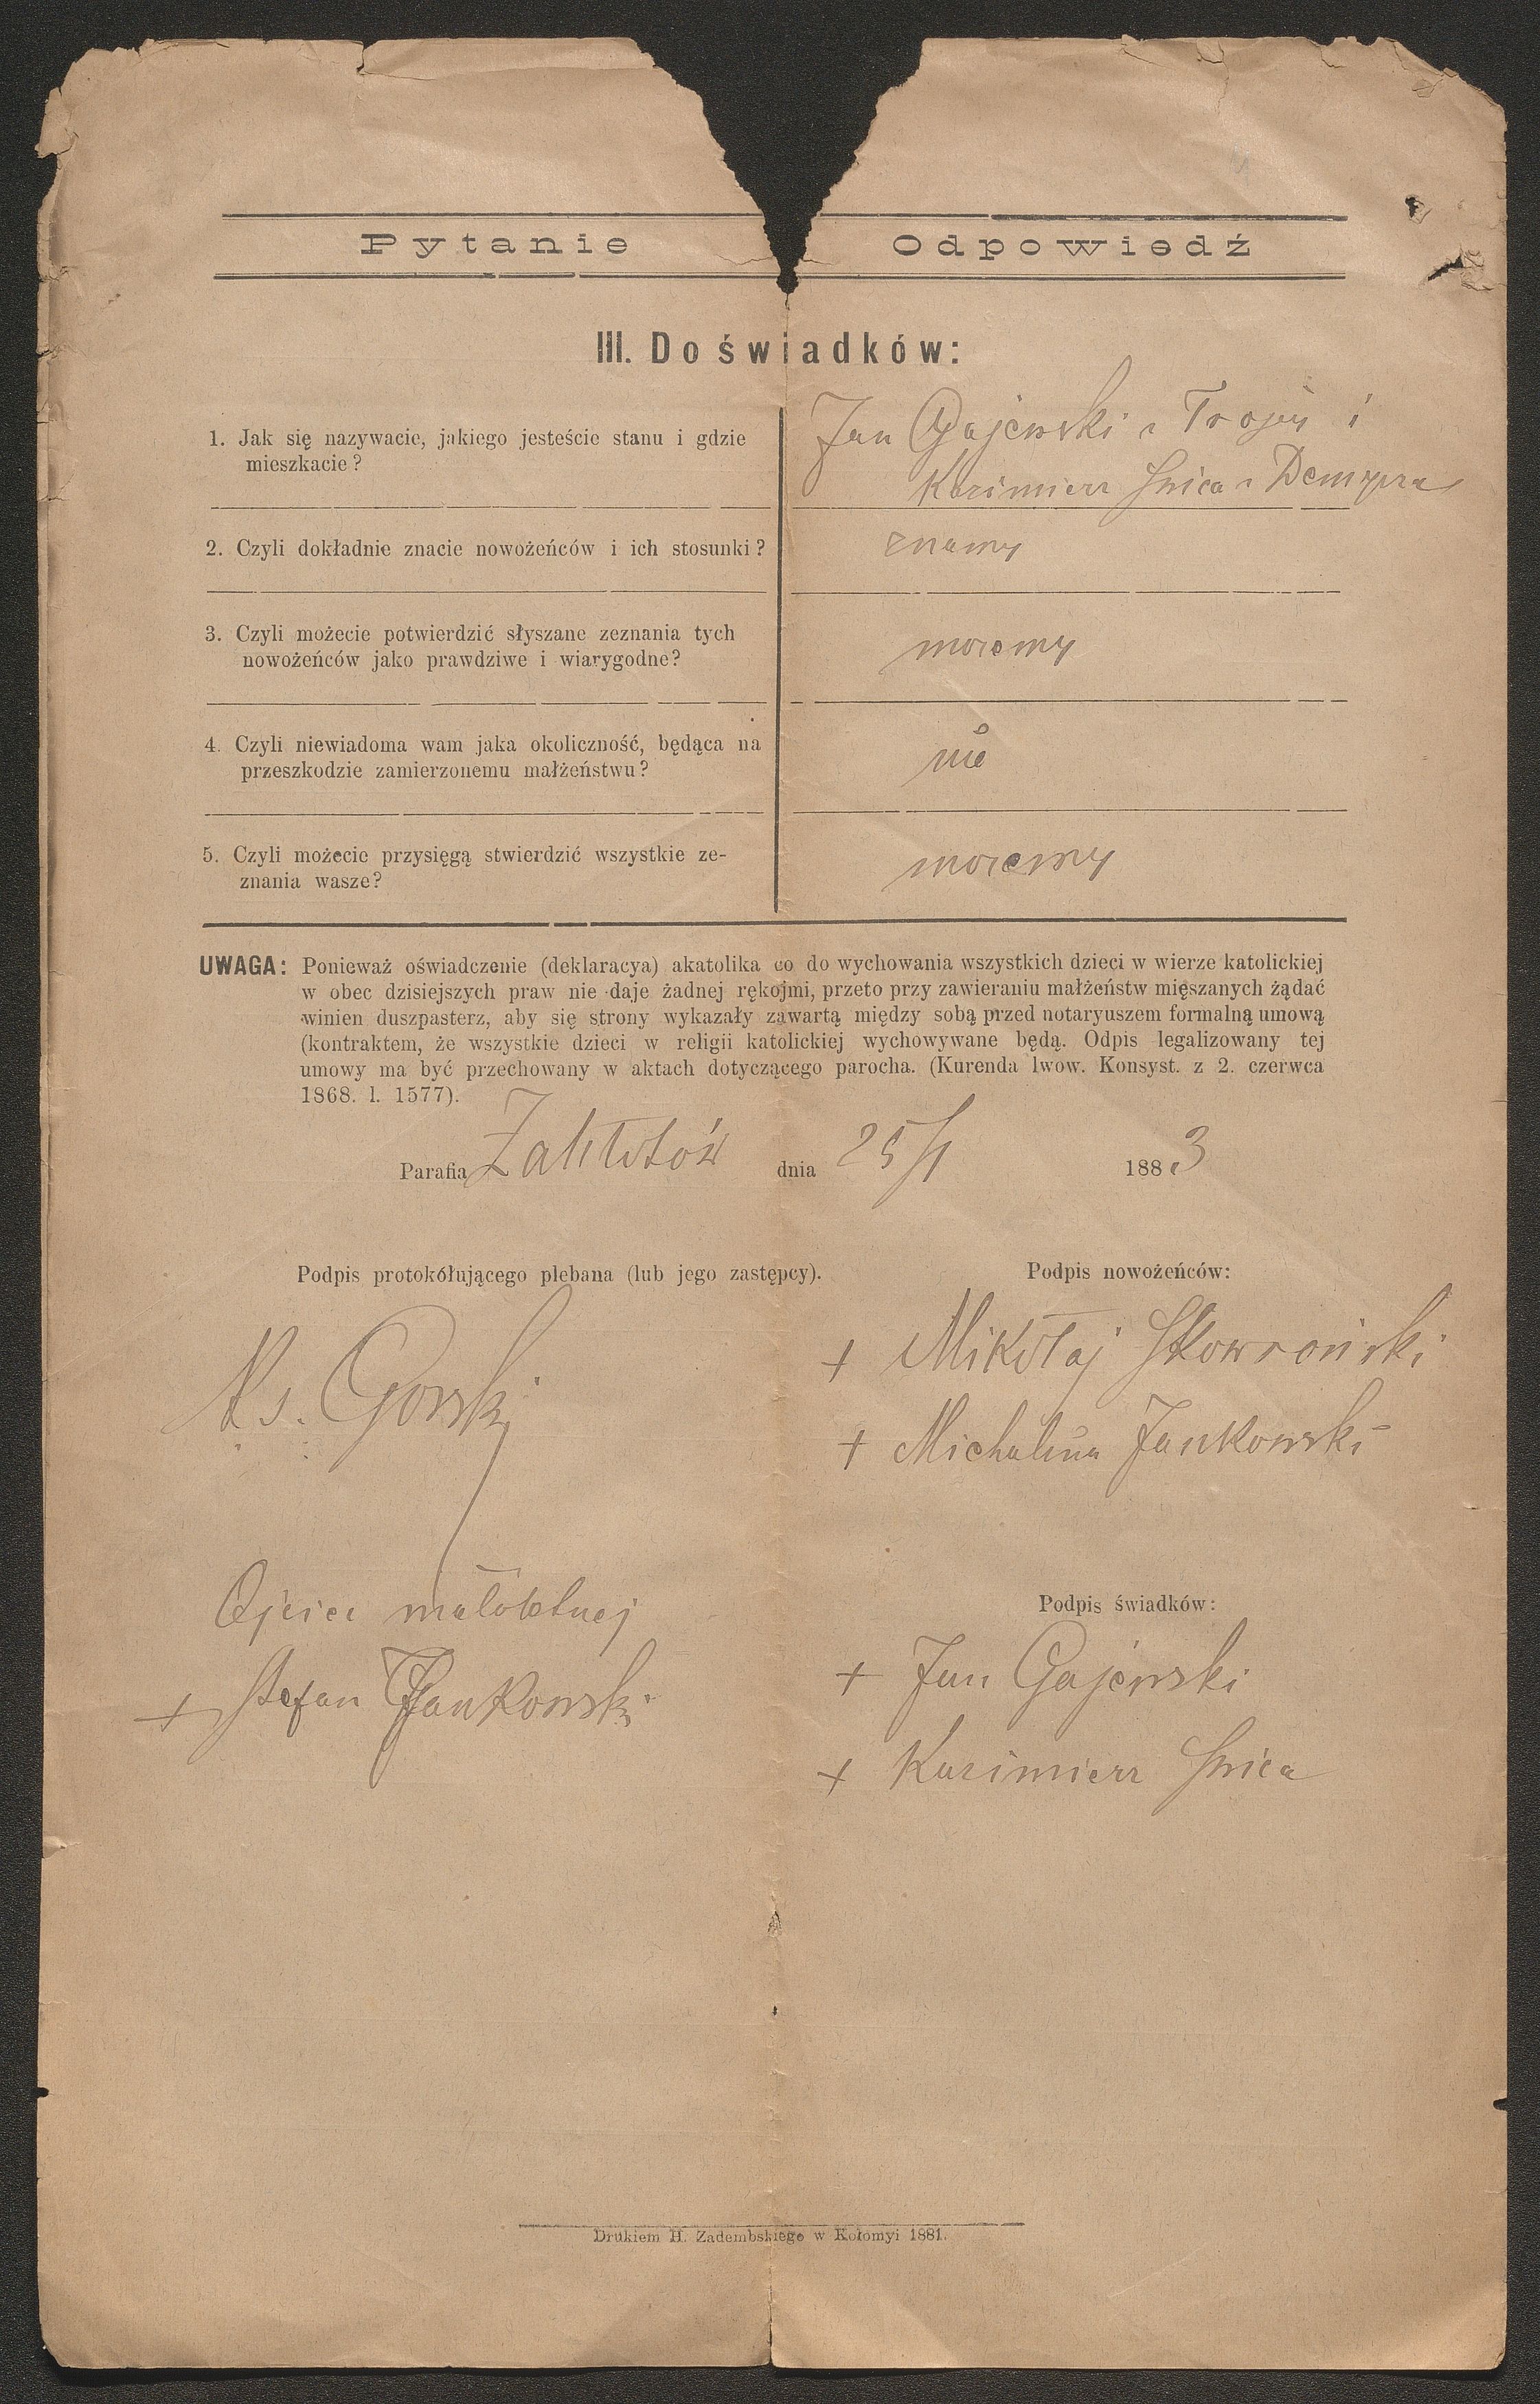 Pytanie
Odpowiedź
III. Do świadków:
1. Jak się nazywacie, jakiego jesteście stanu i gdzie
mieszkacie?
Jan Gajewski z Trojcy i
Kazimierz Śnica z Demycza
2. Czyli dokładnie znacie nowożeńców i ich stosunki?
znamy
3. Czyli możecie potwierdzić słyszane zeznania tych
nowożeńców jako prawdziwe i wiarygodne?
możemy
4. Czyli niewiadoma wam jaka okoliczność, będąca na
przeszkodzie zamierzonemu małżeństwu?
nie
5. Czyli możecie przysięgą stwierdzić wszystkie ze-
znania wasze?
możemy
UWAGA: Ponieważ oświadczenie (deklaracya) akatolika co do wychowania wszystkich dzieci w wierze katolickiej
w obec dzisiejszych praw nie daje żadnej rękojmi, przeto przy zawieraniu małżeństw mięszanych żądać
winien duszpasterz, aby się strony wykazały zawartą między sobą przed notaryuszem formalną umową
(kontraktem, że wszystkie dzieci w religii katolickiej wychowywane będą. Odpis legalizowany tej
umowy ma być przechowany w aktach dotyczącego parocha. (Kurenda lwow. Konsyst. z 2. czerwca
1868. l. 1577).
Parafia Zabłotów dnia 25/1 1883
Podpis protokółującego plebana (lub jego zastępcy).
Podpis nowożeńców:
Ks. Gorski
+ Mikołaj Skowroński
+ Michalina Jankowski
Ojciec małoletnej
+ Stefan Jankowski
Podpis świadków:
+ Jan Gajewski
+ Kazimierz Śnica
Drukiem H. Zadembskiego w Kołomyi 1881.